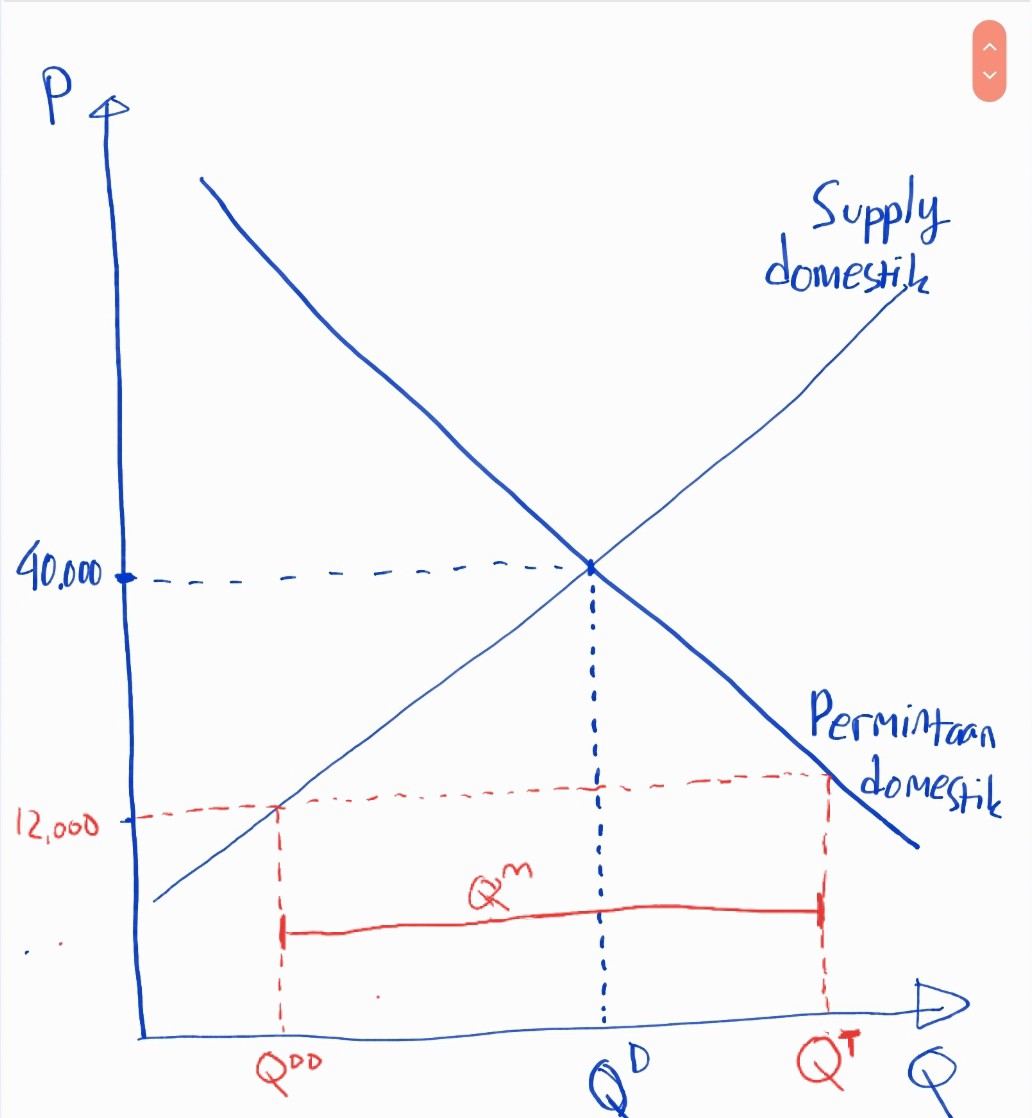 P
Supply
domestik
40.000
Permintaan
domestik
12,000
Qᵐ
Qᴰᴰ
Qᴰ
Qᵀ
Q